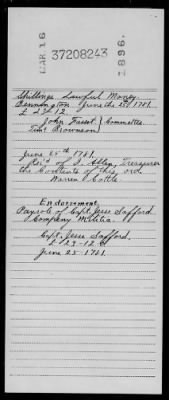 MAR 16
37208243
1896.
Shillings Lawful Money.
Bennington June the 25th 1781.
£ 23-12
John Fasset } Committee.
Timo Brownson
June 25th 1781.
Rec'd of I. Allen, Treasurer
the Contents of this ord.
Warren Cottle
Endorsement.
Payrole of Capt. Jesse Safford
Company Militia.
Capt. Jesse Safford.
£ 23-12-6
June 25-1781.